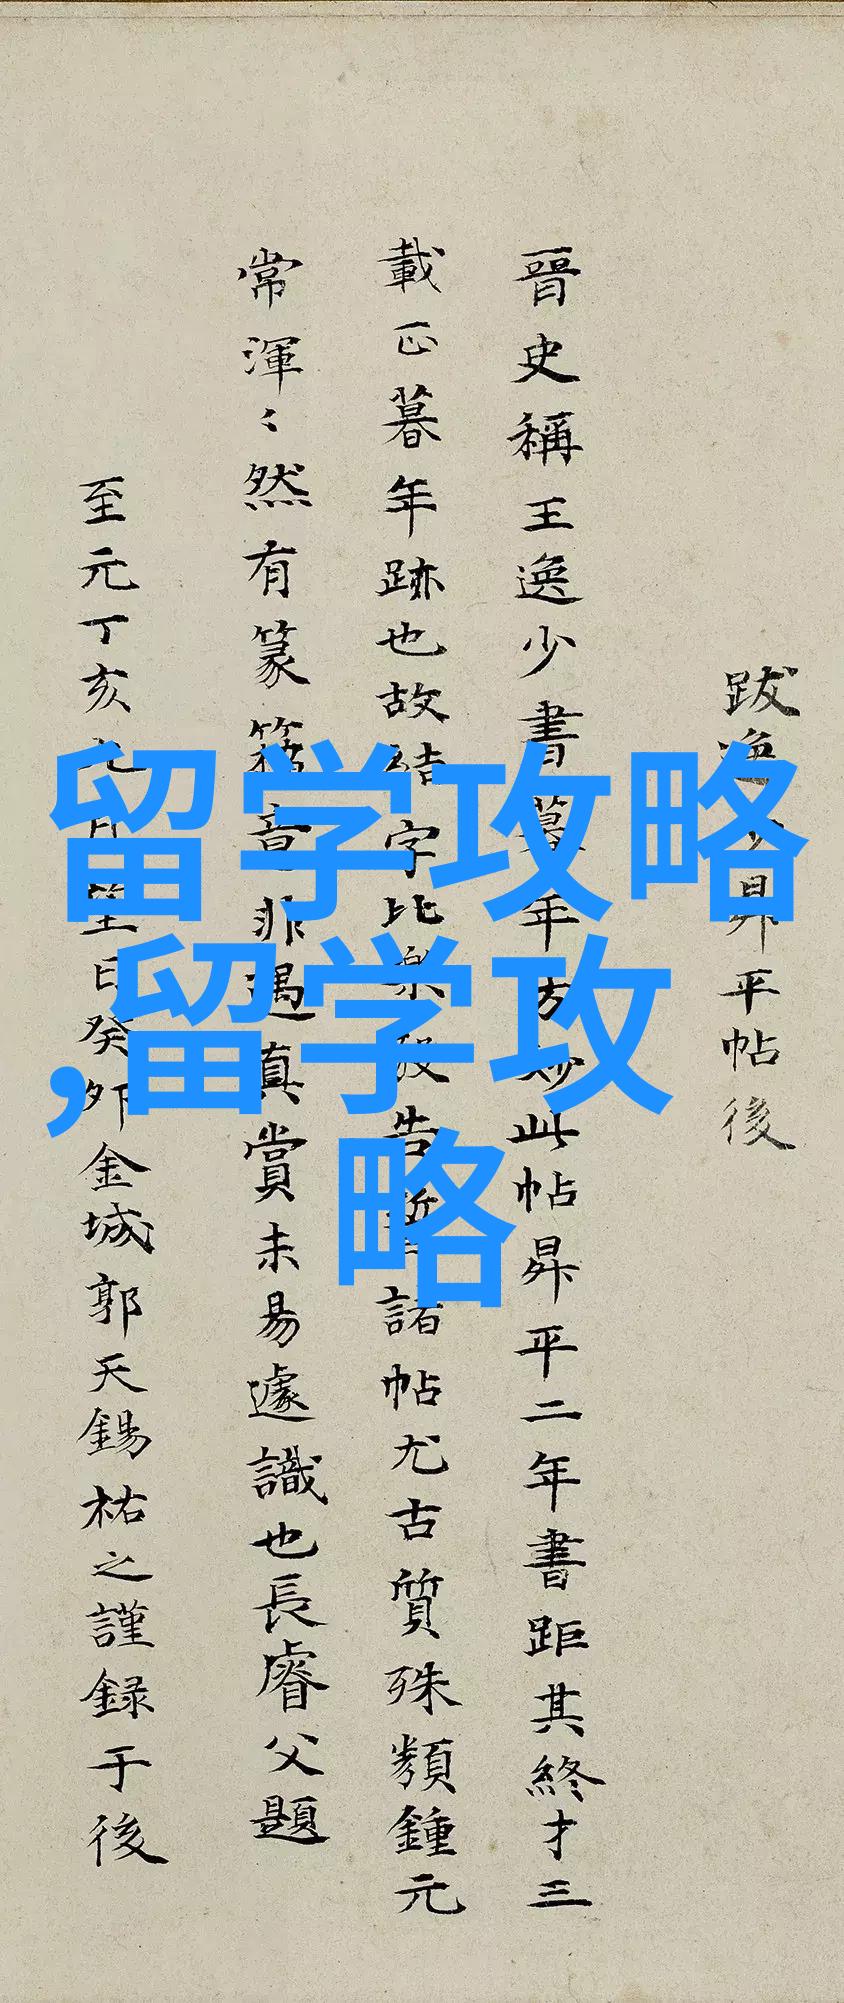 跋逸少昇平帖後
晉史稱王逸少書暮年方妙此帖昇平二年書距其終才三
載正暮年跡也故結字比樂毅告誓諸帖尤古質殊類鍾元
常渾〻然有篆籀意非遇真賞未易遽識也長睿父題
至元丁亥九月望日癸卯金城郭天錫祐之謹録于後
留学攻略
,留学攻
略